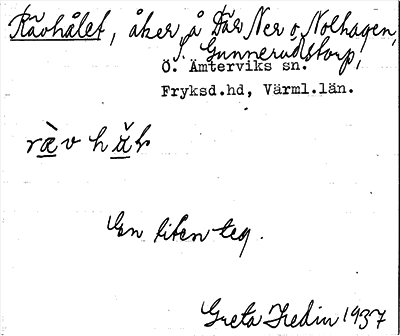 Rävhålet, åker å Där Ner o. Nolhagen,
Gunnerudstorp,
Ö. Ämterviks sn.
Fryksd.hd, Värml.län.
En liten teg.
Greta Hedin 1937